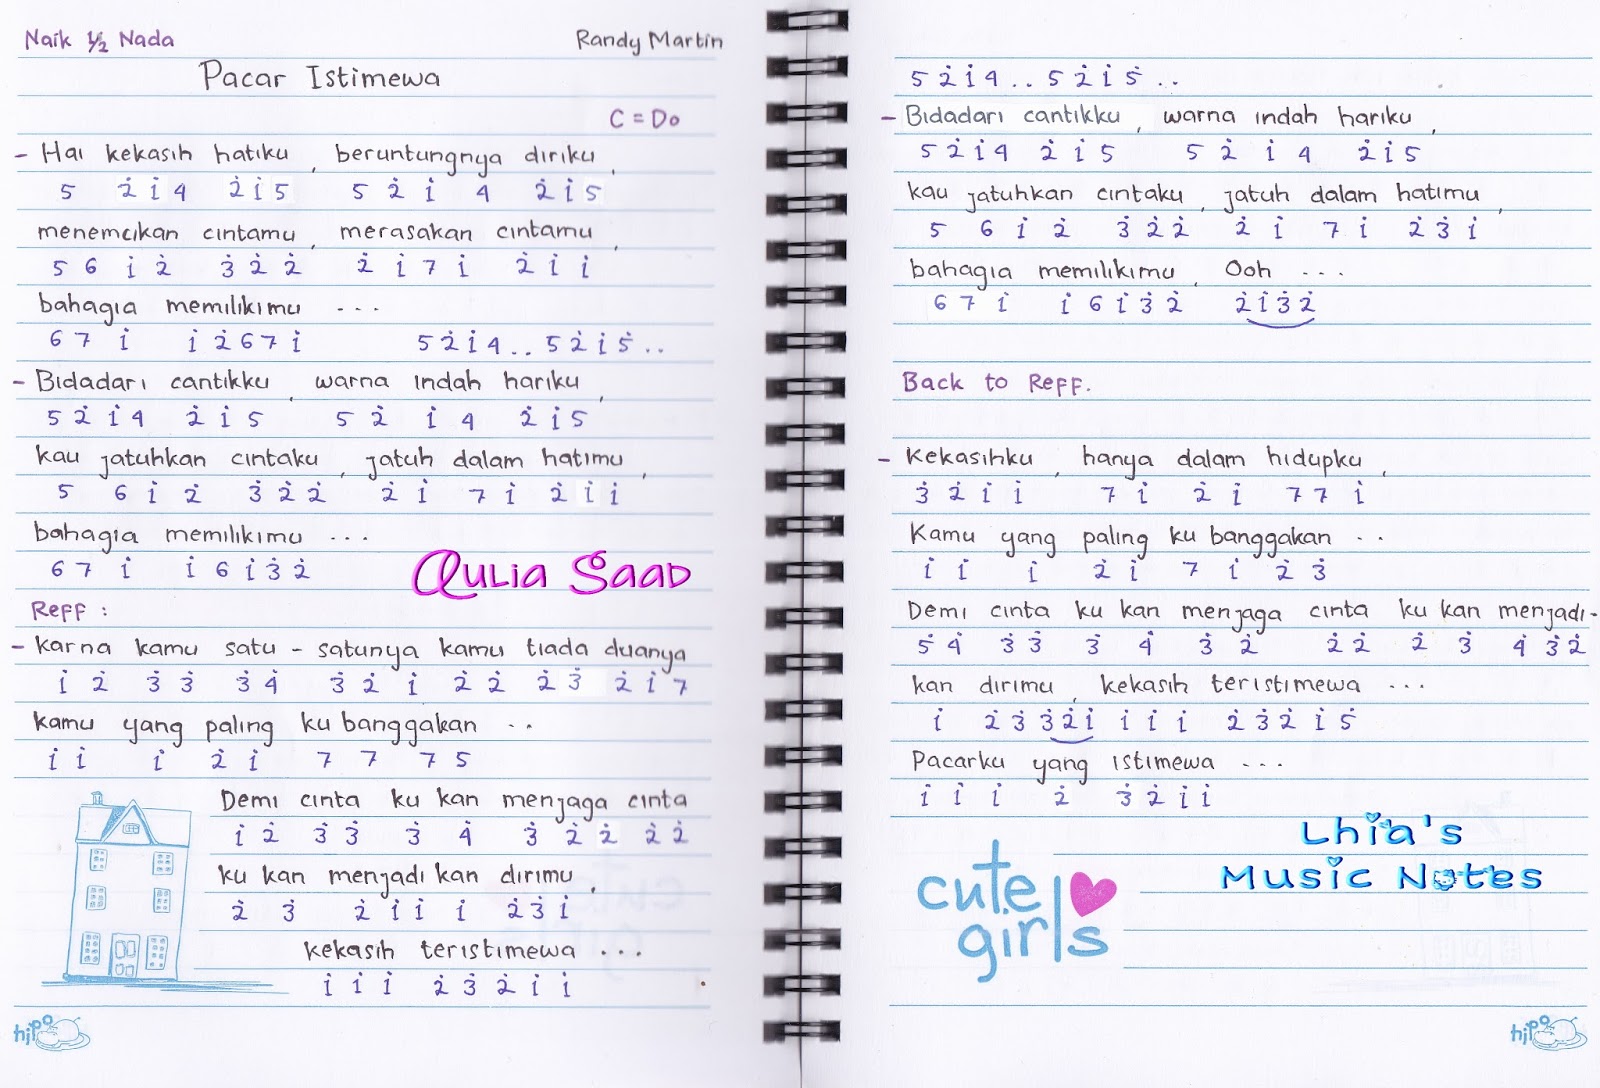 Naik ½ Nada
Randy Martin
Pacar Istimewa
C = Do
- Hai kekasih hatiku, beruntungnya diriku,
5 2̇ 1̇ 4 2̇ 1̇ 5 5 2̇ 1̇ 4 2̇ 1̇ 5
menemukan cintamu, merasakan cintamu,
5 6 1̇ 2̇ 3̇ 2̇ 2̇ 2̇ 1̇ 7 1̇ 2̇ 1̇ 1̇
bahagia memilikimu ...
6 7 1̇ 1̇ 2̇ 6 7 1̇ 5 2̇ 1̇ 4 . . 5 2̇ 1̇ 5 . .
- Bidadari cantikku, warna indah hariku,
5 2̇ 1̇ 4 2̇ 1̇ 5 5 2̇ 1̇ 4 2̇ 1̇ 5
kau jatuhkan cintaku, jatuh dalam hatimu,
5 6 1̇ 2̇ 3̇ 2̇ 2̇ 2̇ 1̇ 7 1̇ 2̇ 1̇ 1̇
bahagia memilikimu ...
6 7 1̇ 1̇ 6 1̇ 3̇ 2̇
Qulia Saad
Reff :
- karna kamu satu - satunya kamu tiada duanya
1̇ 2̇ 3̇ 3̇ 3̇ 4̇ 3̇ 2̇ 1̇ 2̇ 2̇ 2̇ 3̇ 2̇ 1̇ 7
kamu yang paling ku banggakan ..
1̇ 1̇ 1̇ 2̇ 1̇ 7 7 7 5
Demi cinta ku kan menjaga cinta
1̇ 2̇ 3̇ 3̇ 3̇ 4̇ 3̇ 2̇ 2̇ 2̇ 2̇
ku kan menjadi kan dirimu,
2̇ 3̇ 2̇ 1̇ 1̇ 1̇ 2̇ 3̇ 1̇
kekasih teristimewa ...
1̇ 1̇ 1̇ 2̇ 3̇ 2̇ 1̇ 1̇
hipo
5 2̇ 1̇ 4 . . 5 2̇ 1̇ 5 . .
- Bidadari cantikku, warna indah hariku,
5 2̇ 1̇ 4 2̇ 1̇ 5 5 2̇ 1̇ 4 2̇ 1̇ 5
kau jatuhkan cintaku, jatuh dalam hatimu,
5 6 1̇ 2̇ 3̇ 2̇ 2̇ 2̇ 1̇ 7 1̇ 2̇ 3̇ 1̇
bahagia memilikimu, Ooh ...
6 7 1̇ 1̇ 6 1̇ 3̇ 2̇ 2̇ 1̇ 3̇ 2̇
Back to Reff.
- Kekasihku, hanya dalam hidupku,
3̇ 2̇ 1̇ 1̇ 7 1̇ 2̇ 1̇ 7 7 1̇
Kamu yang paling ku banggakan ..
1̇ 1̇ 1̇ 2̇ 1̇ 7 1̇ 2̇ 3̇
Demi cinta ku kan menjaga cinta ku kan menjadi-
5̇ 4̇ 3̇ 3̇ 3̇ 4̇ 3̇ 2̇ 2̇ 2̇ 2̇ 3̇ 4̇ 3̇ 2̇
kan dirimu, kekasih teristimewa ...
1̇ 2̇ 3̇ 3̇ 2̇ 1̇ 1̇ 1̇ 1̇ 2̇ 3̇ 2̇ 1̇ 5̇
Pacarku yang istimewa ...
1̇ 1̇ 1̇ 2̇ 3̇ 2̇ 1̇ 1̇
Lhia's
Music Notes
cute
girls
hipo